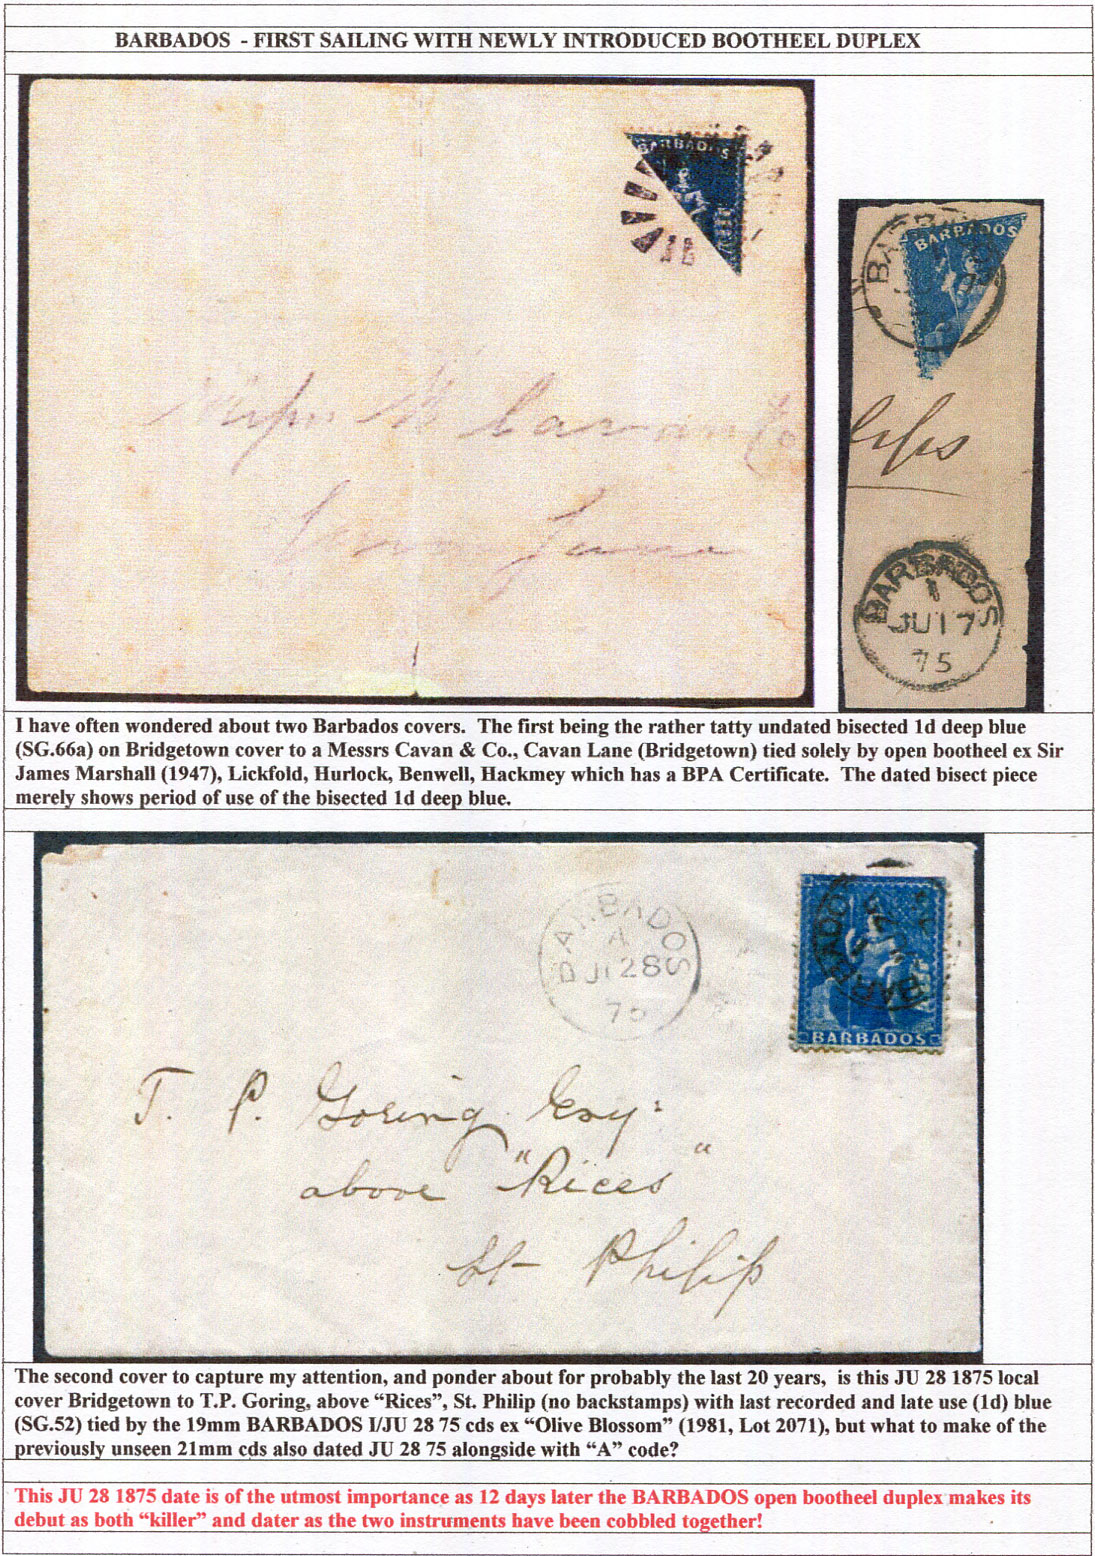 BARBADOS - FIRST SAILING WITH NEWLY INTRODUCED BOOTHEEL DUPLEX
BARBADOS
BARBADOS
BARBADOS
Cavan
BARBADOS
1
JU 17
75
I have often wondered about two Barbados covers. The first being the rather tatty undated bisected 1d deep blue
(SG.66a) on Bridgetown cover to a Messrs Cavan & Co., Cavan Lane (Bridgetown) tied solely by open bootheel ex Sir
James Marshall (1947), Lickfold, Hurlock, Benwell, Hackmey which has a BPA Certificate. The dated bisect piece
merely shows period of use of the bisected 1d deep blue.
BARBADOS
A
JU 28
75
BARBADOS
BARBADOS
T. P. Goring Esq:
above "Rices"
St Philip
The second cover to capture my attention, and ponder about for probably the last 20 years, is this JU 28 1875 local
cover Bridgetown to T.P. Goring, above “Rices”, St. Philip (no backstamps) with last recorded and late use (1d) blue
(SG.52) tied by the 19mm BARBADOS I/JU 28 75 cds ex “Olive Blossom” (1981, Lot 2071), but what to make of the
previously unseen 21mm cds also dated JU 28 75 alongside with “A” code?
This JU 28 1875 date is of the utmost importance as 12 days later the BARBADOS open bootheel duplex makes its
debut as both “killer” and dater as the two instruments have been cobbled together!